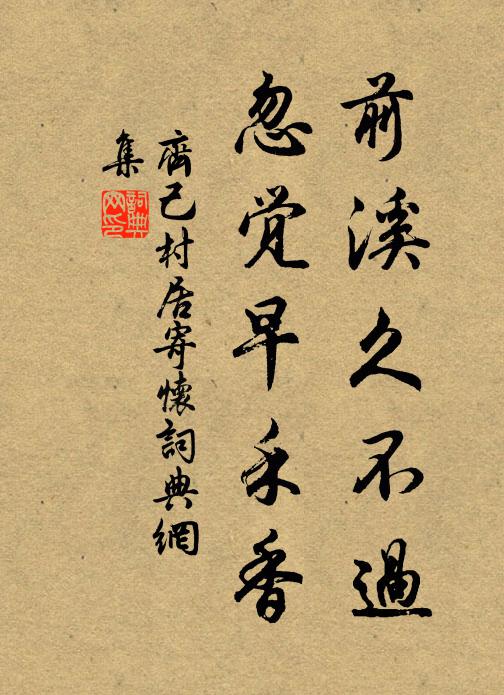 前溪久不過
忽觉早禾香
齊己村居寄懷詞典網
集
詞典
网印